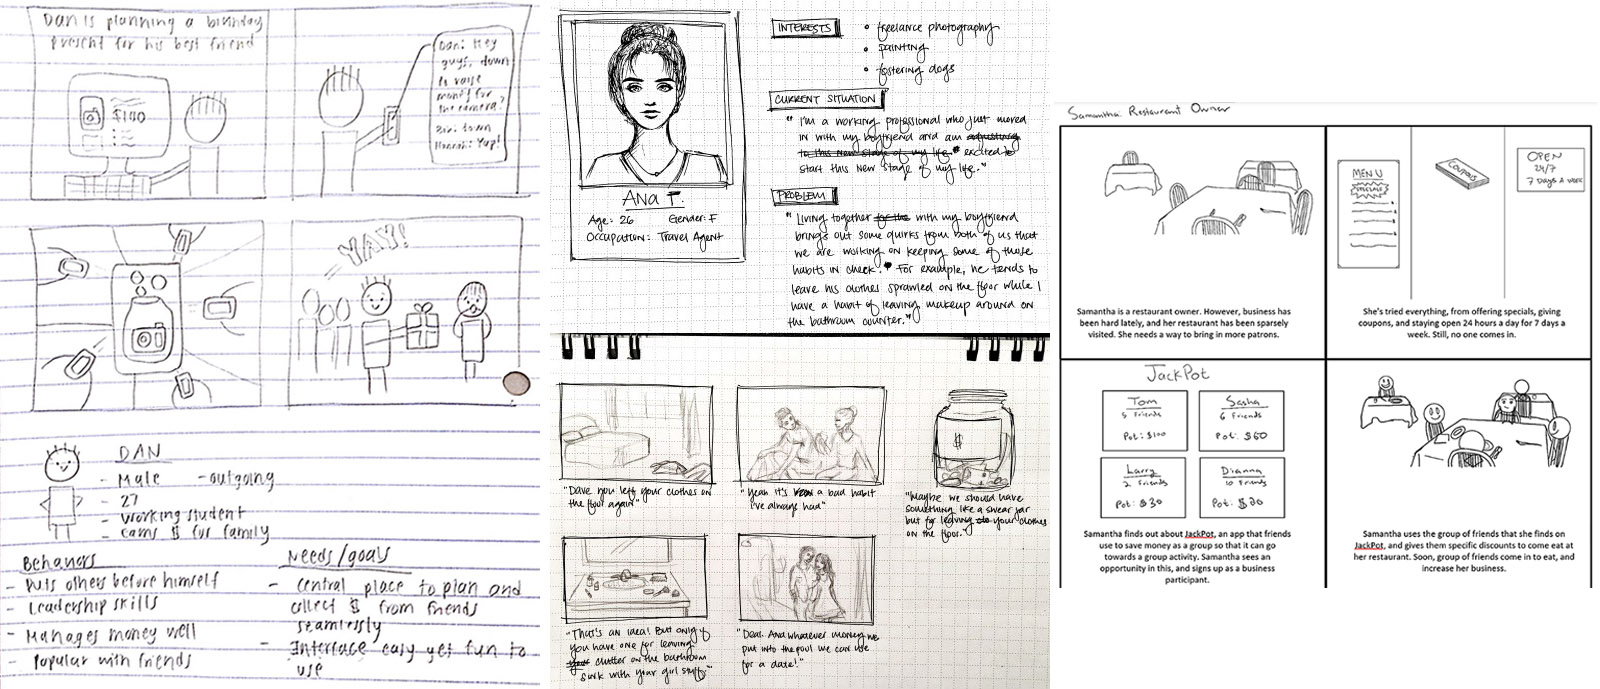 Dan is planning a birthday
present for his best friend
$140
Dan: Hey
guys, down
to raise
money for
the camera?
Bibi: down
Hannah: Yup!
YAY!
DAN
- Male
- outgoing
- 27
- working student
- earns $ for family
Behaviors
- Puts others before himself
- Leadership skills
- Manages money well
- Popular with friends
Needs/goals
- Central place to plan and
collect $ from friends
seamlessly
- Interface easy yet fun to
use
Ana F.
Age: 26 Gender: F
Occupation: Travel Agent
INTERESTS
• freelance photography
• painting
• fostering dogs
CURRENT SITUATION
"I'm a working professional who just moved
in with my boyfriend and am adjusting
to this new stage of my life. excited to
start this new stage of my life."
PROBLEM
"Living together for the with my boyfriend
brings out some quirks from both of us that
we are working on keeping some of those
habits in check. For example, he tends to
leave his clothes sprawled on the floor while I
have a habit of leaving makeup around on
the bathroom counter."
"Dave you left your clothes on
the floor again"
"Yeah it's a bad habit
I've always had"
$
"Maybe we should have
something like a swear jar
but for leaving your clothes
on the floor."
"That's an idea! But only if
you have one for leaving
clutter on the bathroom
sink with your girl stuff."
"Deal. And whatever money we
put into the pool we can use
for a date!"
Samantha: Restaurant Owner
Samantha is a restaurant owner. However, business has
been hard lately, and her restaurant has been sparsely
visited. She needs a way to bring in more patrons.
MENU
SPECIALS
Coupons
OPEN
24/7
7 Days A week
She's tried everything, from offering specials, giving
coupons, and staying open 24 hours a day for 7 days a
week. Still, no one comes in.
JackPot
Tom
5 Friends
Pot: $100
Sasha
6 Friends
Pot: $60
Larry
2 Friends
Pot: $30
Dianna
10 Friends
Pot: $20
Samantha finds out about JackPot, an app that friends
use to save money as a group so that it can go
towards a group activity. Samantha sees an
opportunity in this, and signs up as a business
participant.
Samantha uses the group of friends that she finds on
JackPot, and gives them specific discounts to come eat at
her restaurant. Soon, group of friends come in to eat, and
increase her business.